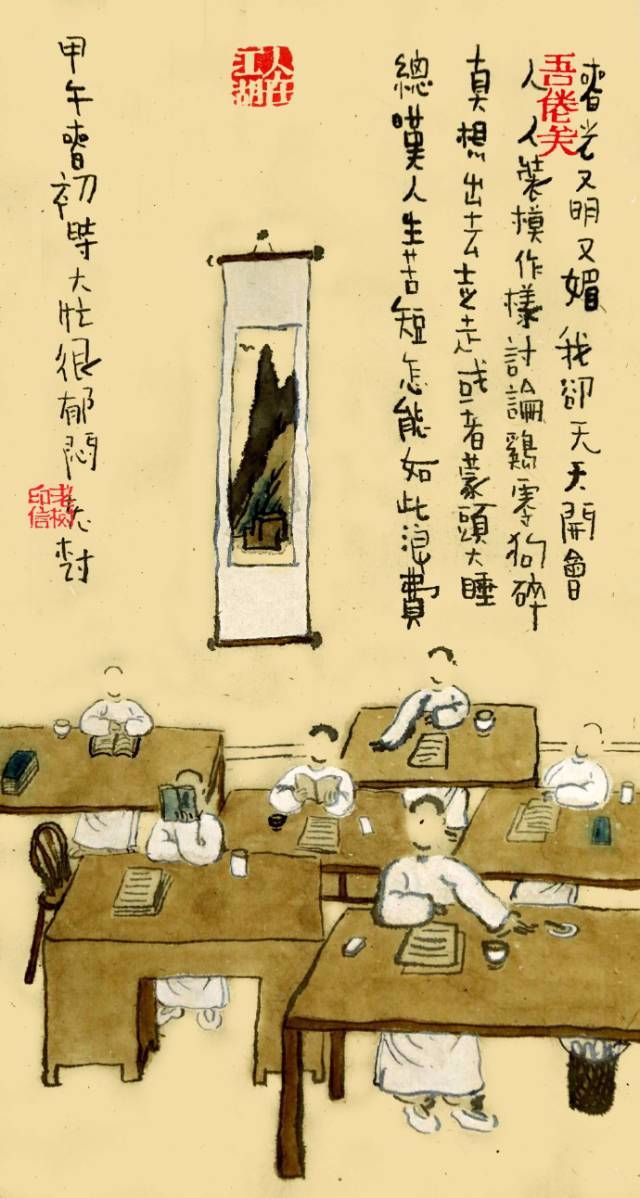 吾倦矣
春光又明又媚 我卻天天開會
人人裝模作樣討論鷄零狗碎
真想出去走走或者蒙頭大睡
總嘆人生苦短怎能如此浪費
人在江湖
甲午春初時大壯很郁悶 老树
老树印信